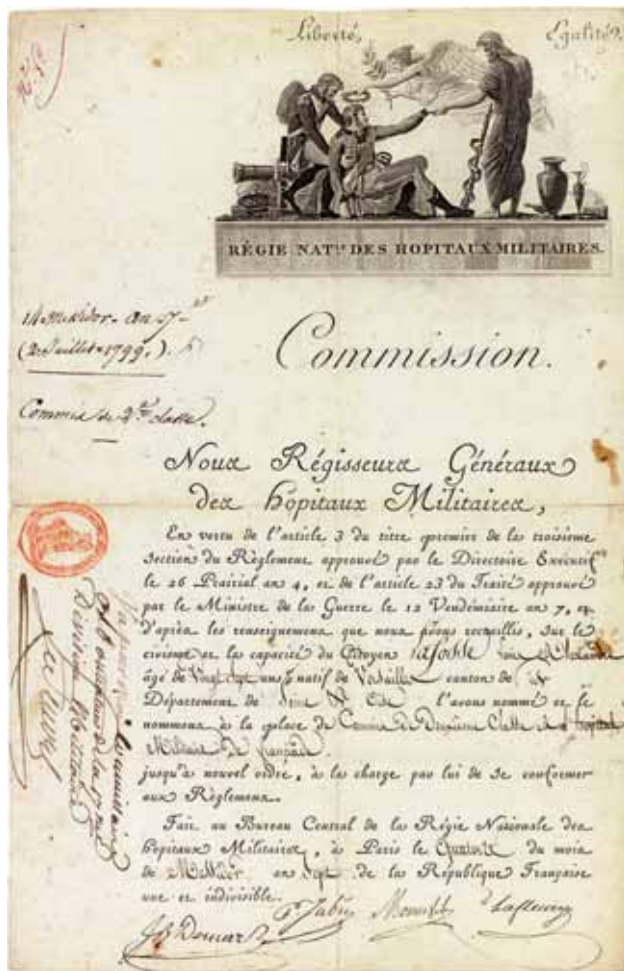 Liberté, Egalité.
RÉGIE NAT.LE DES HOPITAUX MILITAIRES.
14 Messidor - an 7
(2 Juillet 1799.)
Commission.
Commis de 2.de classe.
Nous Régisseurs Généraux
des hôpitaux Militaires,
En vertu de l'article 3 du titre premier de la troisième
Section du Règlement approuvé par le Directoire Exécutif
le 26 Prairial an 4, et de l'article 23 du Traité approuvé
par le Ministre de la Guerre le 12 Vendémiaire an 7, et
d'après les renseignemens que nous avons recueillis, sur le
civisme et la capacité du Citoyen
âgé de Vingt Sept ans natif de Versailles canton de
Département de Seine & Oise l'avons nommé et le
nommons à la place de Commis de Deuxième Classe
Militaire de
jusqu'à nouvel ordre, à la charge par lui de se conformer
aux Règlemens.
Fait au Bureau Central de la Régie Nationale des
hôpitaux Militaires, à Paris le Quatorze du mois
de Messidor an Sept de la République Française
une et indivisible.